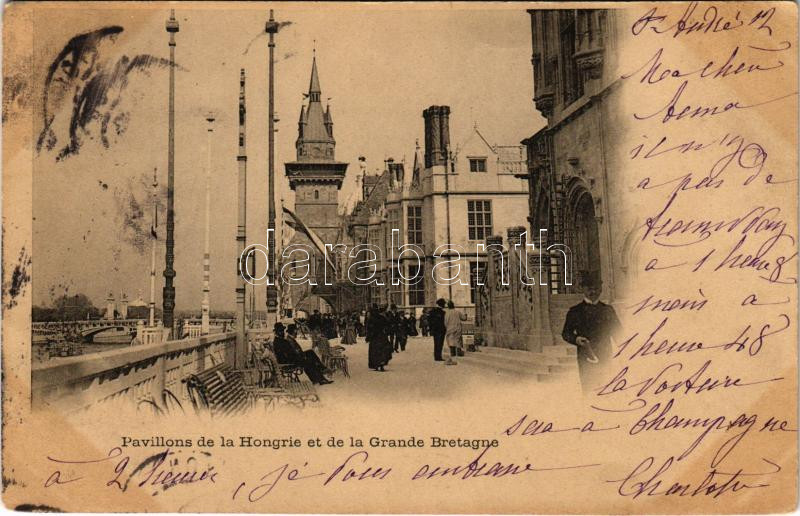 St André 12
Ma chère
Irma
il n'y
a pas de
tramway
à 1 heure
mais à
1 heure 48
la voiture
sera à Champagne
à 2 heures, je vous embrasse
Charlotte
darabanth
Pavillons de la Hongrie et de la Grande Bretagne